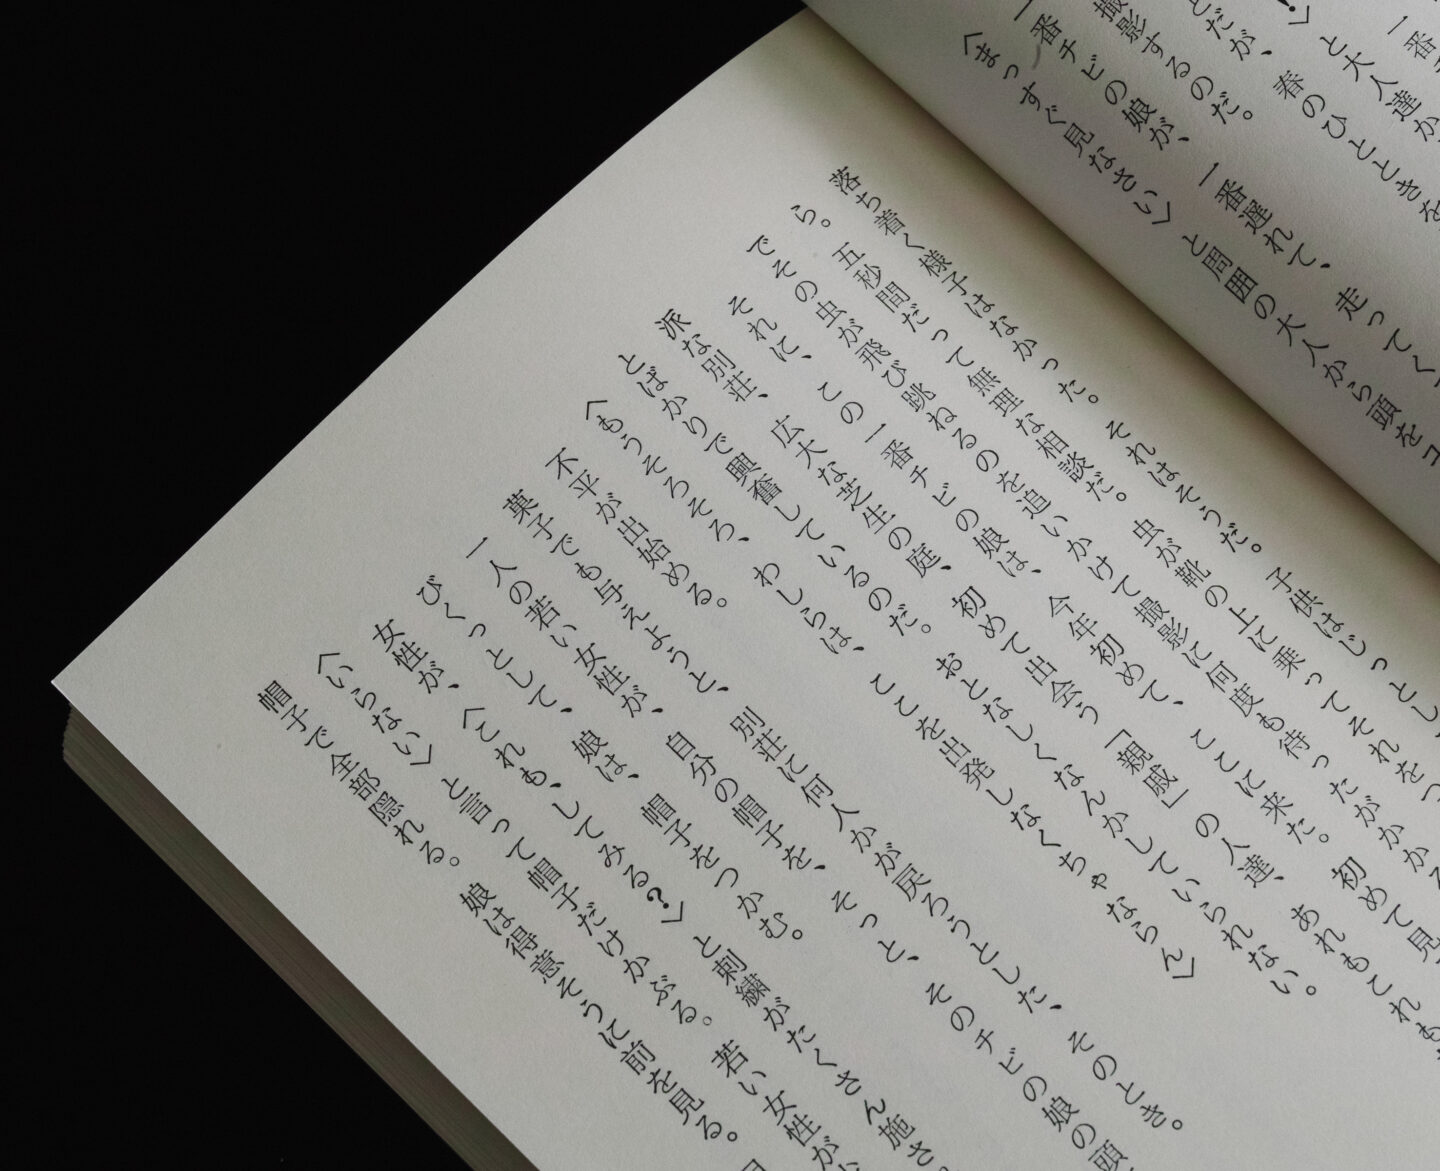 一番
〉と大人達か
とだが、春のひとときを
撮影するのだ。
一番チビの娘が、一番遅れて、走ってく
〈まっすぐ見なさい〉と周囲の大人から頭をコ
落ち着く様子はなかった。それはそうだ。子供はじっとし
ら。五秒間だって無理な相談だ。虫が靴の上に乗ってそれをつ
でその虫が飛び跳ねるのを追いかけて撮影に何度も待ったがかかる
それに、この一番チビの娘は、今年初めて、ここに来た。初めて見
派な別荘、広大な芝生の庭、初めて出会う「親戚」の人達、あれもこれも
とばかりで興奮しているのだ。おとなしくなんかしていられない。
〈もうそろそろ、わしらは、ここを出発しなくちゃならん〉
不平が出始める。
菓子でも与えようと、別荘に何人かが戻ろうとした、そのとき。
一人の若い女性が、自分の帽子を、そっと、そのチビの娘の頭
びくっとして、娘は、帽子をつかむ。
女性が、〈これも、してみる?〉と刺繍がたくさん施さ
〈いらない〉と言って帽子だけかぶる。若い女性が、
帽子で全部隠れる。娘は得意そうに前を見る。